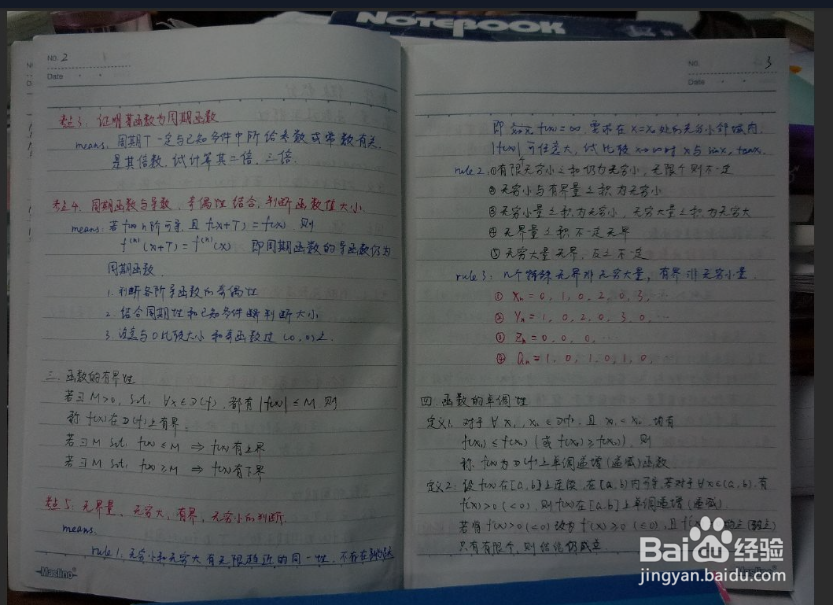 NOTEBOOK
No. 2
Date
考点3. 证明某函数为周期函数
means: 周期T一定与已知条件中所给参数或常数有关
是其倍数, 试计算其二倍、三倍.
考点4. 周期函数与导数、奇偶性结合, 判断函数值大小
means: 若f(x) n阶可导, 且 f(x+T) = f(x) 则
f⁽ⁿ⁾(x+T) = f⁽ⁿ⁾(x) 即周期函数的导函数仍为
周期函数.
1. 判断各阶导函数的奇偶性
2. 结合周期性和已知条件 判断大小
3. 注意与0比较大小和奇函数过(0,0)点.
三. 函数的有界性
若∃M>0, s.t. ∀x∈D(f), 都有|f(x)| ≤ M 则
称f(x)在D(f)上有界.
若∃M s.t. f(x) ≤ M ⇒ f(x)有上界
若∃M s.t. f(x) ≥ M ⇒ f(x)有下界
考点5. 无界量、无穷大、有界、无穷小的判断.
means:
rule 1. 无穷小和无穷大有无限趋近的同一性, 不存在
No. 3
Date
即 f(x) = ∞, 要求在x=x₀处的无穷小邻域内
|f(x)|可任意大, 试比较 时 x与 sinx, tanx.
rule 2. ①有限无穷小之和仍为无穷小, 无限个则不一定
②无穷小与有界量之积为无穷小
③无穷小量之积为无穷小, 无穷大量之积为无穷大
④无界量之积不一定无界
⑤无穷大量无界, 反之不一定
rule 3: 几个特殊无界非无穷大量, 有界非无穷小量.
① Xn = 0, 1, 0, 2, 0, 3, …
② Yn = 1, 0, 2, 0, 3, 0, …
③ Zn = 0, 0, 0, …
④ an = 1, 0, 1, 0, 1, 0, …
四. 函数的单调性
定义1. 对于∀x₁, x₂ ∈ D(f), 且 x₁ < x₂ 均有
f(x₁) ≤ f(x₂) (或 f(x₁) ≥ f(x₂)), 则
称f(x)为D(f)上单调递增(递减)函数
定义2: 设f(x)在[a,b]上连续, 在(a,b)内可导, 若对于∀x∈(a,b), 有
f'(x)>0 (<0), 则f(x)在[a,b]上单调递增(递减)
若将f'(x)>0 (<0) 改为f'(x) ≥ 0 (≤0), 且f'(x)
只有有限个, 则结论仍成立
Baidu经验
jingyan.baidu.com